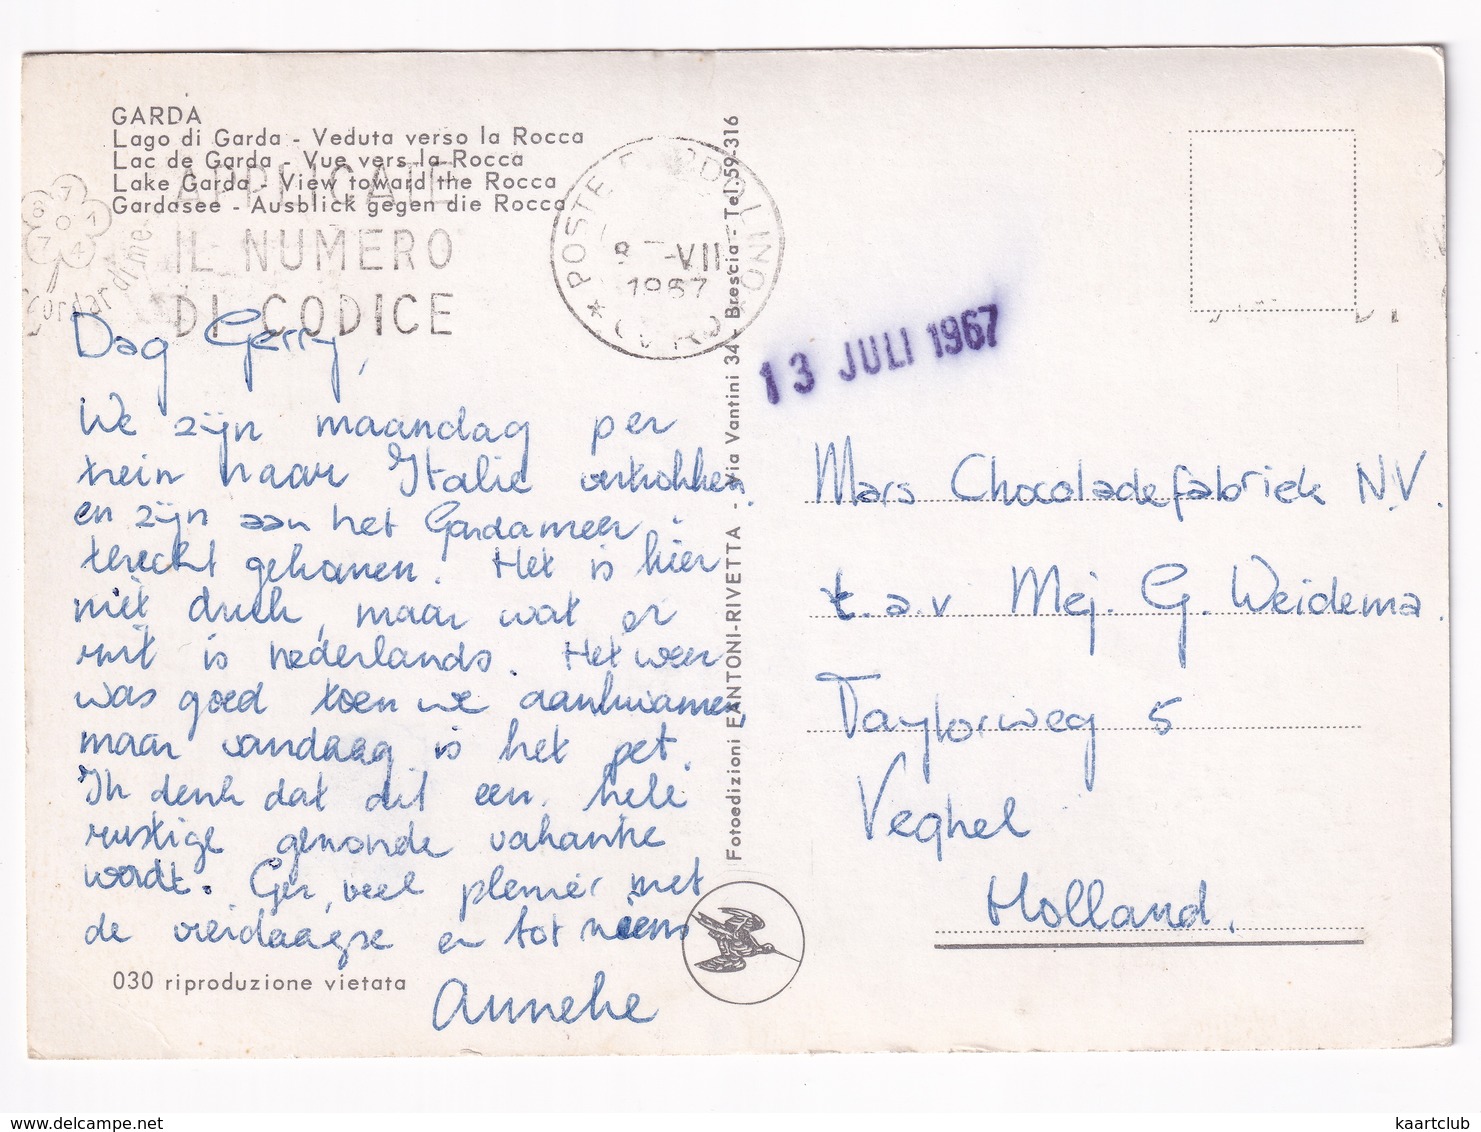 GARDA
Lago di Garda - Veduta verso la Rocca
Lac de Garda - Vue vers la Rocca
Lake Garda - View toward the Rocca
Gardasee - Ausblick gegen die Rocca
APPLICATE
IL NUMERO
DI CODICE
POSTE BARDOLINO
8 -VII
1967
(VR)
13 JULI 1967
Dag Gerry,
We zijn maandag per
trein naar Italie vertrokken
en zijn aan het Gardameer
terecht gekomen. Het is hier
niet druk, maar wat er
uit is nederlands. Het weer
was goed toen we aankwamen,
maar vandaag is het pet.
Ik denk dat dit een hele
rustige gezonde vakantie
wordt. Ger, veel plezier met
de vierdaagse en tot ziens
Anneke
Mars Chocoladefabriek N.V.
t.a.v Mej. G. Weidema
Taylorweg 5
Veghel
Holland.
Fotoedizioni FANTONI-RIVETTA - Via Vantini 34 - Brescia - Tel. 59-316
030 riproduzione vietata
kaartclub
www.delcampe.net